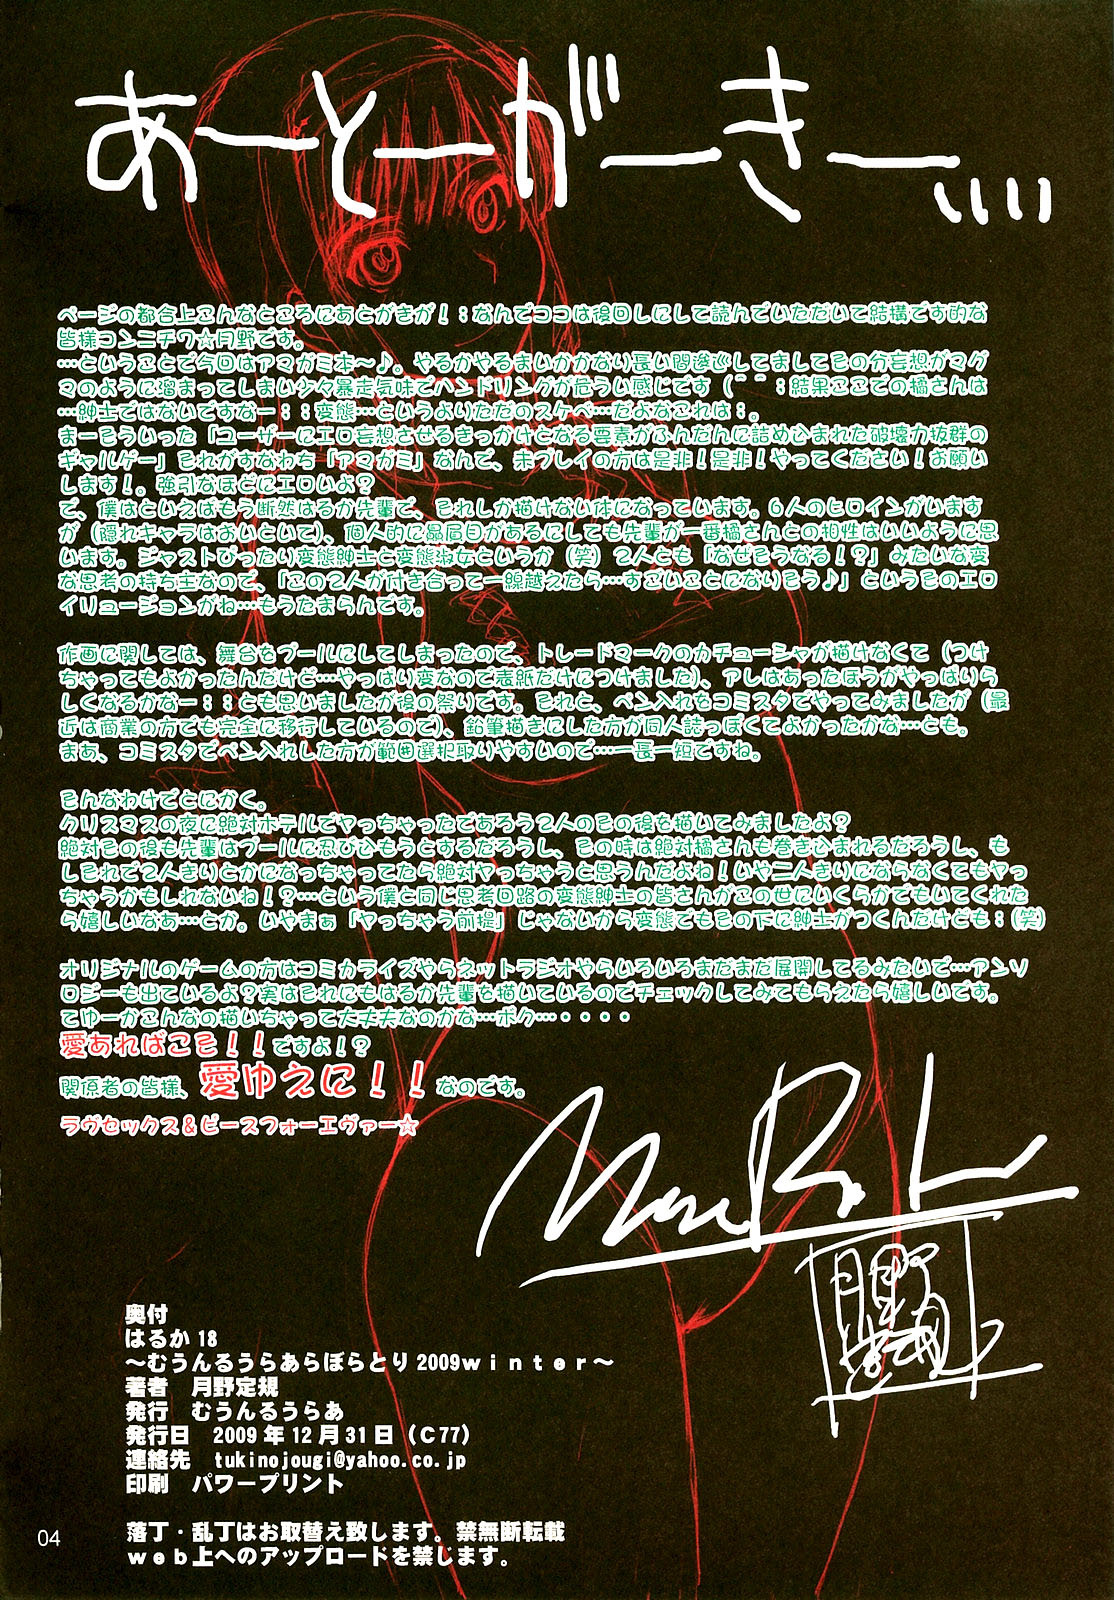 あーとーがーきー、、、、
ページの都合上こんなところにあとがきが！；なんでココは後回しにして読んでいただいて結構です的な
皆様コンニチワ☆月野です。
…ということで今回はアマガミ本～♪。やるかやるまいかかなり長い間逡巡してましてその分妄想がマグ
マのように溜まってしまい少々暴走気味でハンドリングが危うい感じです（＾＾；結果ここでの橘さんは
…紳士ではないですなー；；変態…というよりただのスケベ…だよなこれは；。
まーそういった「ユーザーにエロ妄想させるきっかけとなる要素がふんだんに詰め込まれた破壊力抜群の
ギャルゲー」それがすなわち「アマガミ」なんで、未プレイの方は是非！是非！やってください！お願い
します！。強引なほどにエロいよ？
で、僕はといえばもう断然はるか先輩で、それしか描けない体になっています。６人のヒロインがいます
が（隠れキャラはおいといて）、個人的に贔屓目があるにしても先輩が一番橘さんとの相性はいいように思
います。ジャストぴったり変態紳士と変態淑女というか（笑）２人とも「なぜそうなる！？」みたいな変
な思考の持ち主なので、「この２人が付き合って一線越えたら…すごいことになりそう♪」というそのエロ
イリュージョンがね…もうたまらんです。

作画に関しては、舞台をプールにしてしまったので、トレードマークのカチューシャが描けなくて（つけ
ちゃってもよかったんだけど…やっぱり変なので表紙だけにつけました）、アレはあったほうがやっぱりら
しくなるかなー；；とも思いましたが後の祭りです。それと、ペン入れをコミスタでやってみましたが（最
近は商業の方でも完全に移行しているので）、鉛筆描きにした方が同人誌っぽくてよかったかな…とも。
まあ、コミスタでペン入れした方が範囲選択取りやすいので…一長一短ですね。

そんなわけでとにかく。
クリスマスの夜に絶対ホテルでヤっちゃったであろう２人のその後を描いてみましたよ？
絶対その後も先輩はプールに忍びひもうとするだろうし、その時は絶対橘さんも巻きひまれるだろうし、も
しそれで２人きりとかになっちゃってたら絶対ヤっちゃうと思うんだよね！いや二人きりにならなくてもヤっ
ちゃうかもしれないね！？…という僕と同じ思考回路の変態紳士の皆さんがこの世にいくらかでもいてくれた
ら嬉しいなあ…とか。いやまぁ「ヤっちゃう前提」じゃないから変態でもその下に紳士がつくんだけども；（笑）

オリジナルのゲームの方はコミカライズやらネットラジオやらいろいろまだまだ展開してるみたいで…アンソ
ロジーも出ているよ？実はそれにもはるか先輩を描いているのでチェックしてみてもらえたら嬉しいです。
てゆーかこんなの描いちゃって大丈夫なのかな…ボク…・・・・
愛あればこそ！！ですよ！？
関係者の皆様、愛ゆえに！！なのです。
ラヴセックス＆ピースフォーエヴァー☆
奥付
はるか18
～むうんるうらあらぼらとり2009winter～
著者　月野定規
発行　むうんるうらあ
発行日　2009年12月31日（C77）
連絡先　tukinojougi@yahoo.co.jp
印刷　パワープリント
04
落丁・乱丁はお取替え致します。禁無断転載
web上へのアップロードを禁じます。